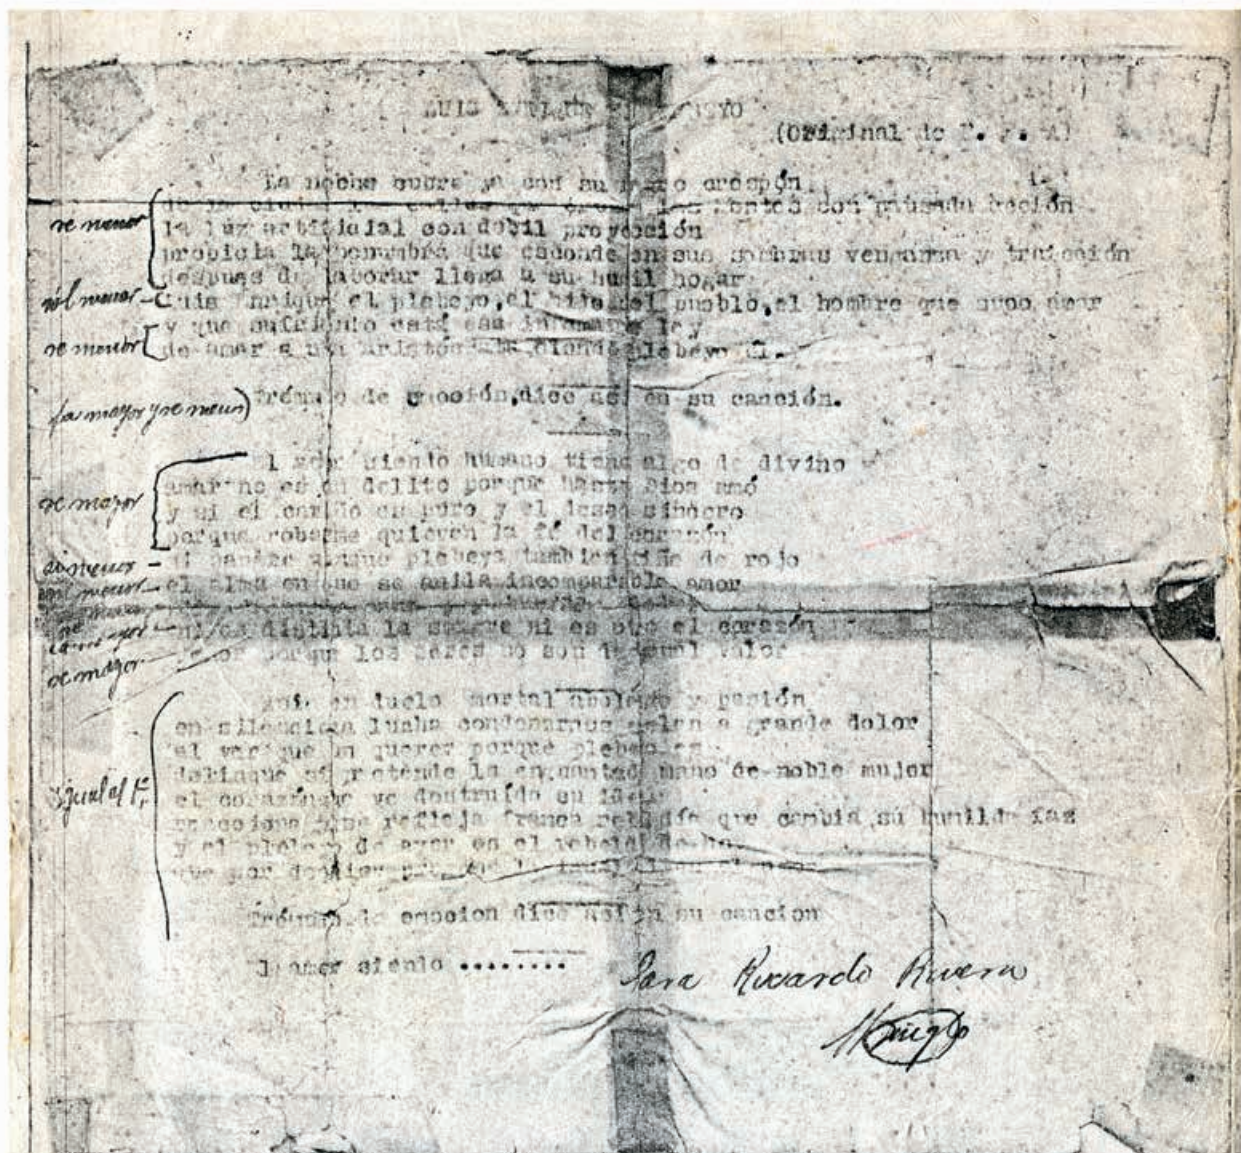 LUIS
(Original de F. P. A)
La noche cubre ya con su negro crespón
las calles que cruzan las gentes con pausada acción
la luz artificial con debil proyección
propicia la penumbra que esconde en sus sombras venganza y traición
re menor
despues de laborar llega a su humil hogar
sol menor
Luis Enrique el plebeyo, el hijo del pueblo, el hombre que supo amar
y que sufriendo está esa infamante ley
re menor
de amar a una aristócrata siendo plebeyo él.
la mayor y re menor)
Trémulo de emoción, dice así en su canción.
El amor siento humano tiene algo de divino
amar no es un delito porque hasta Dios amó
re mayor
y si el cariño es puro y el deseo sincero
porque robarme quieren la fé del corazón
si menor
Mi sangre aunque plebeya tambien tiñe de rojo
mi menor
el alma en que se anida incomparable amor
la mayor
ni es distinta la sangre ni es otro el corazón
re mayor
porque los seres no son de igual valor
Así en duelo mortal abolengo y pasión
en silenciosa lucha condenarnos suelen a grande dolor
al ver que un querer porque plebeyo es
delinque si pretende la enguantada mano de noble mujer
igual al 1º
el corazón que ve destruído su ideal
reacciona y se refleja franca rebeldía que cambia su humilde faz
y el plebeyo de ayer es el rebelde de hoy
que por doquier
Trémulo de emocion dice así en su cancion
El amor siento ........
Para Ricardo Rivera